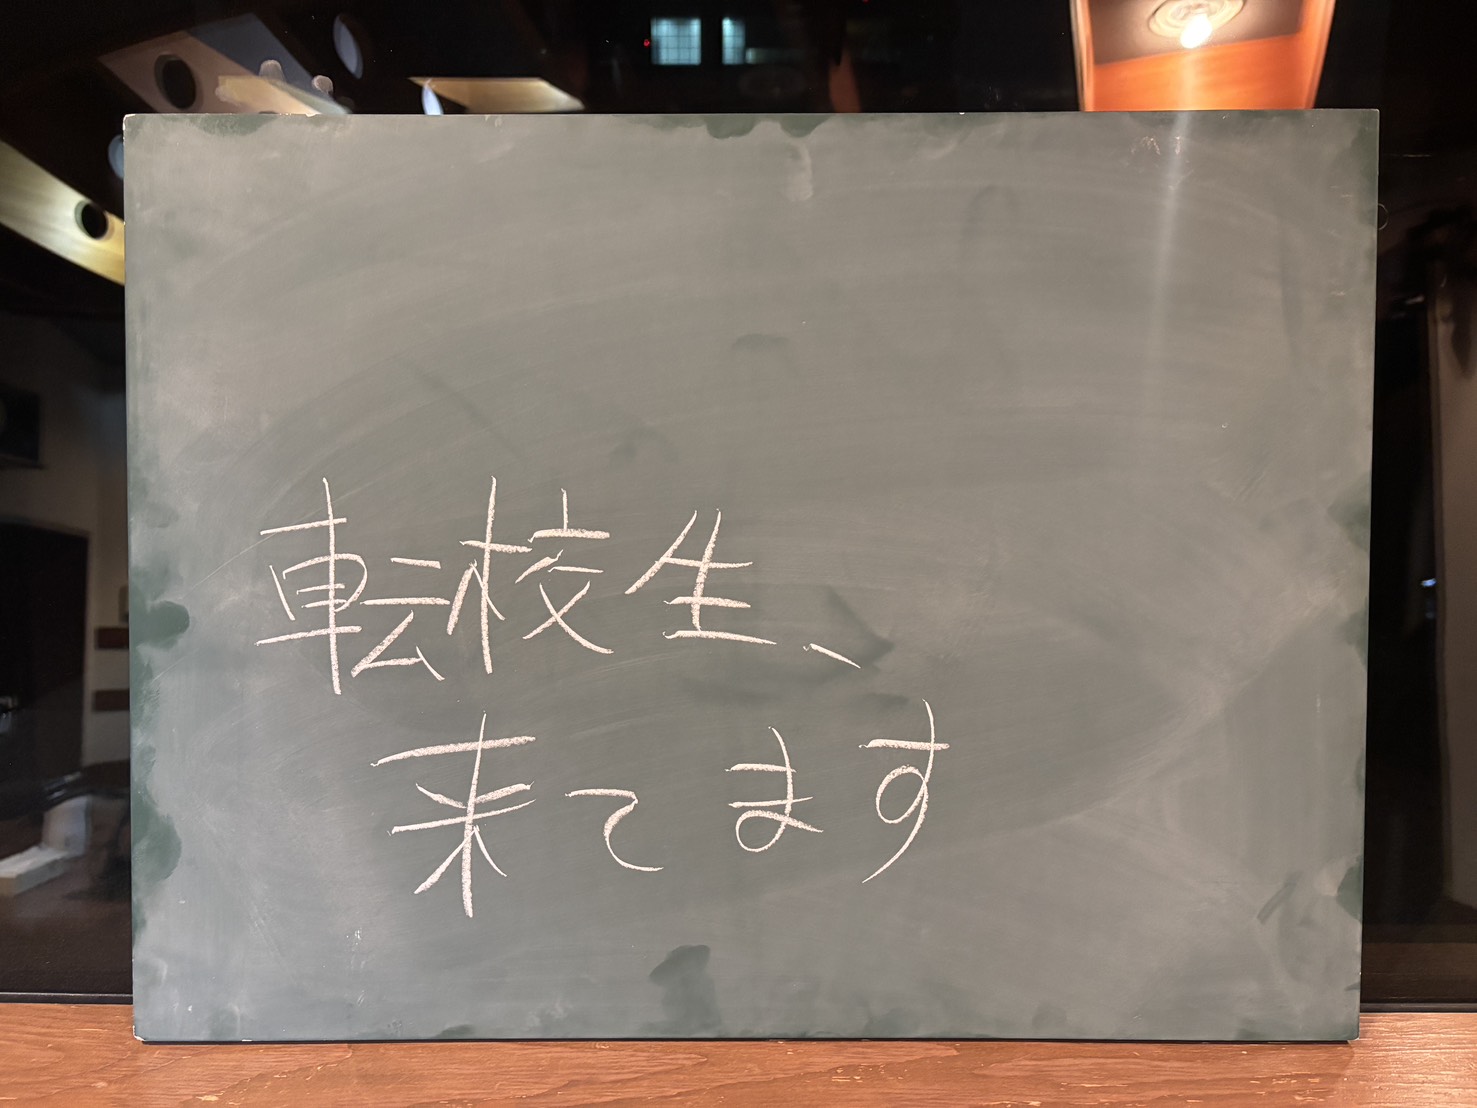 転校生、
来てます